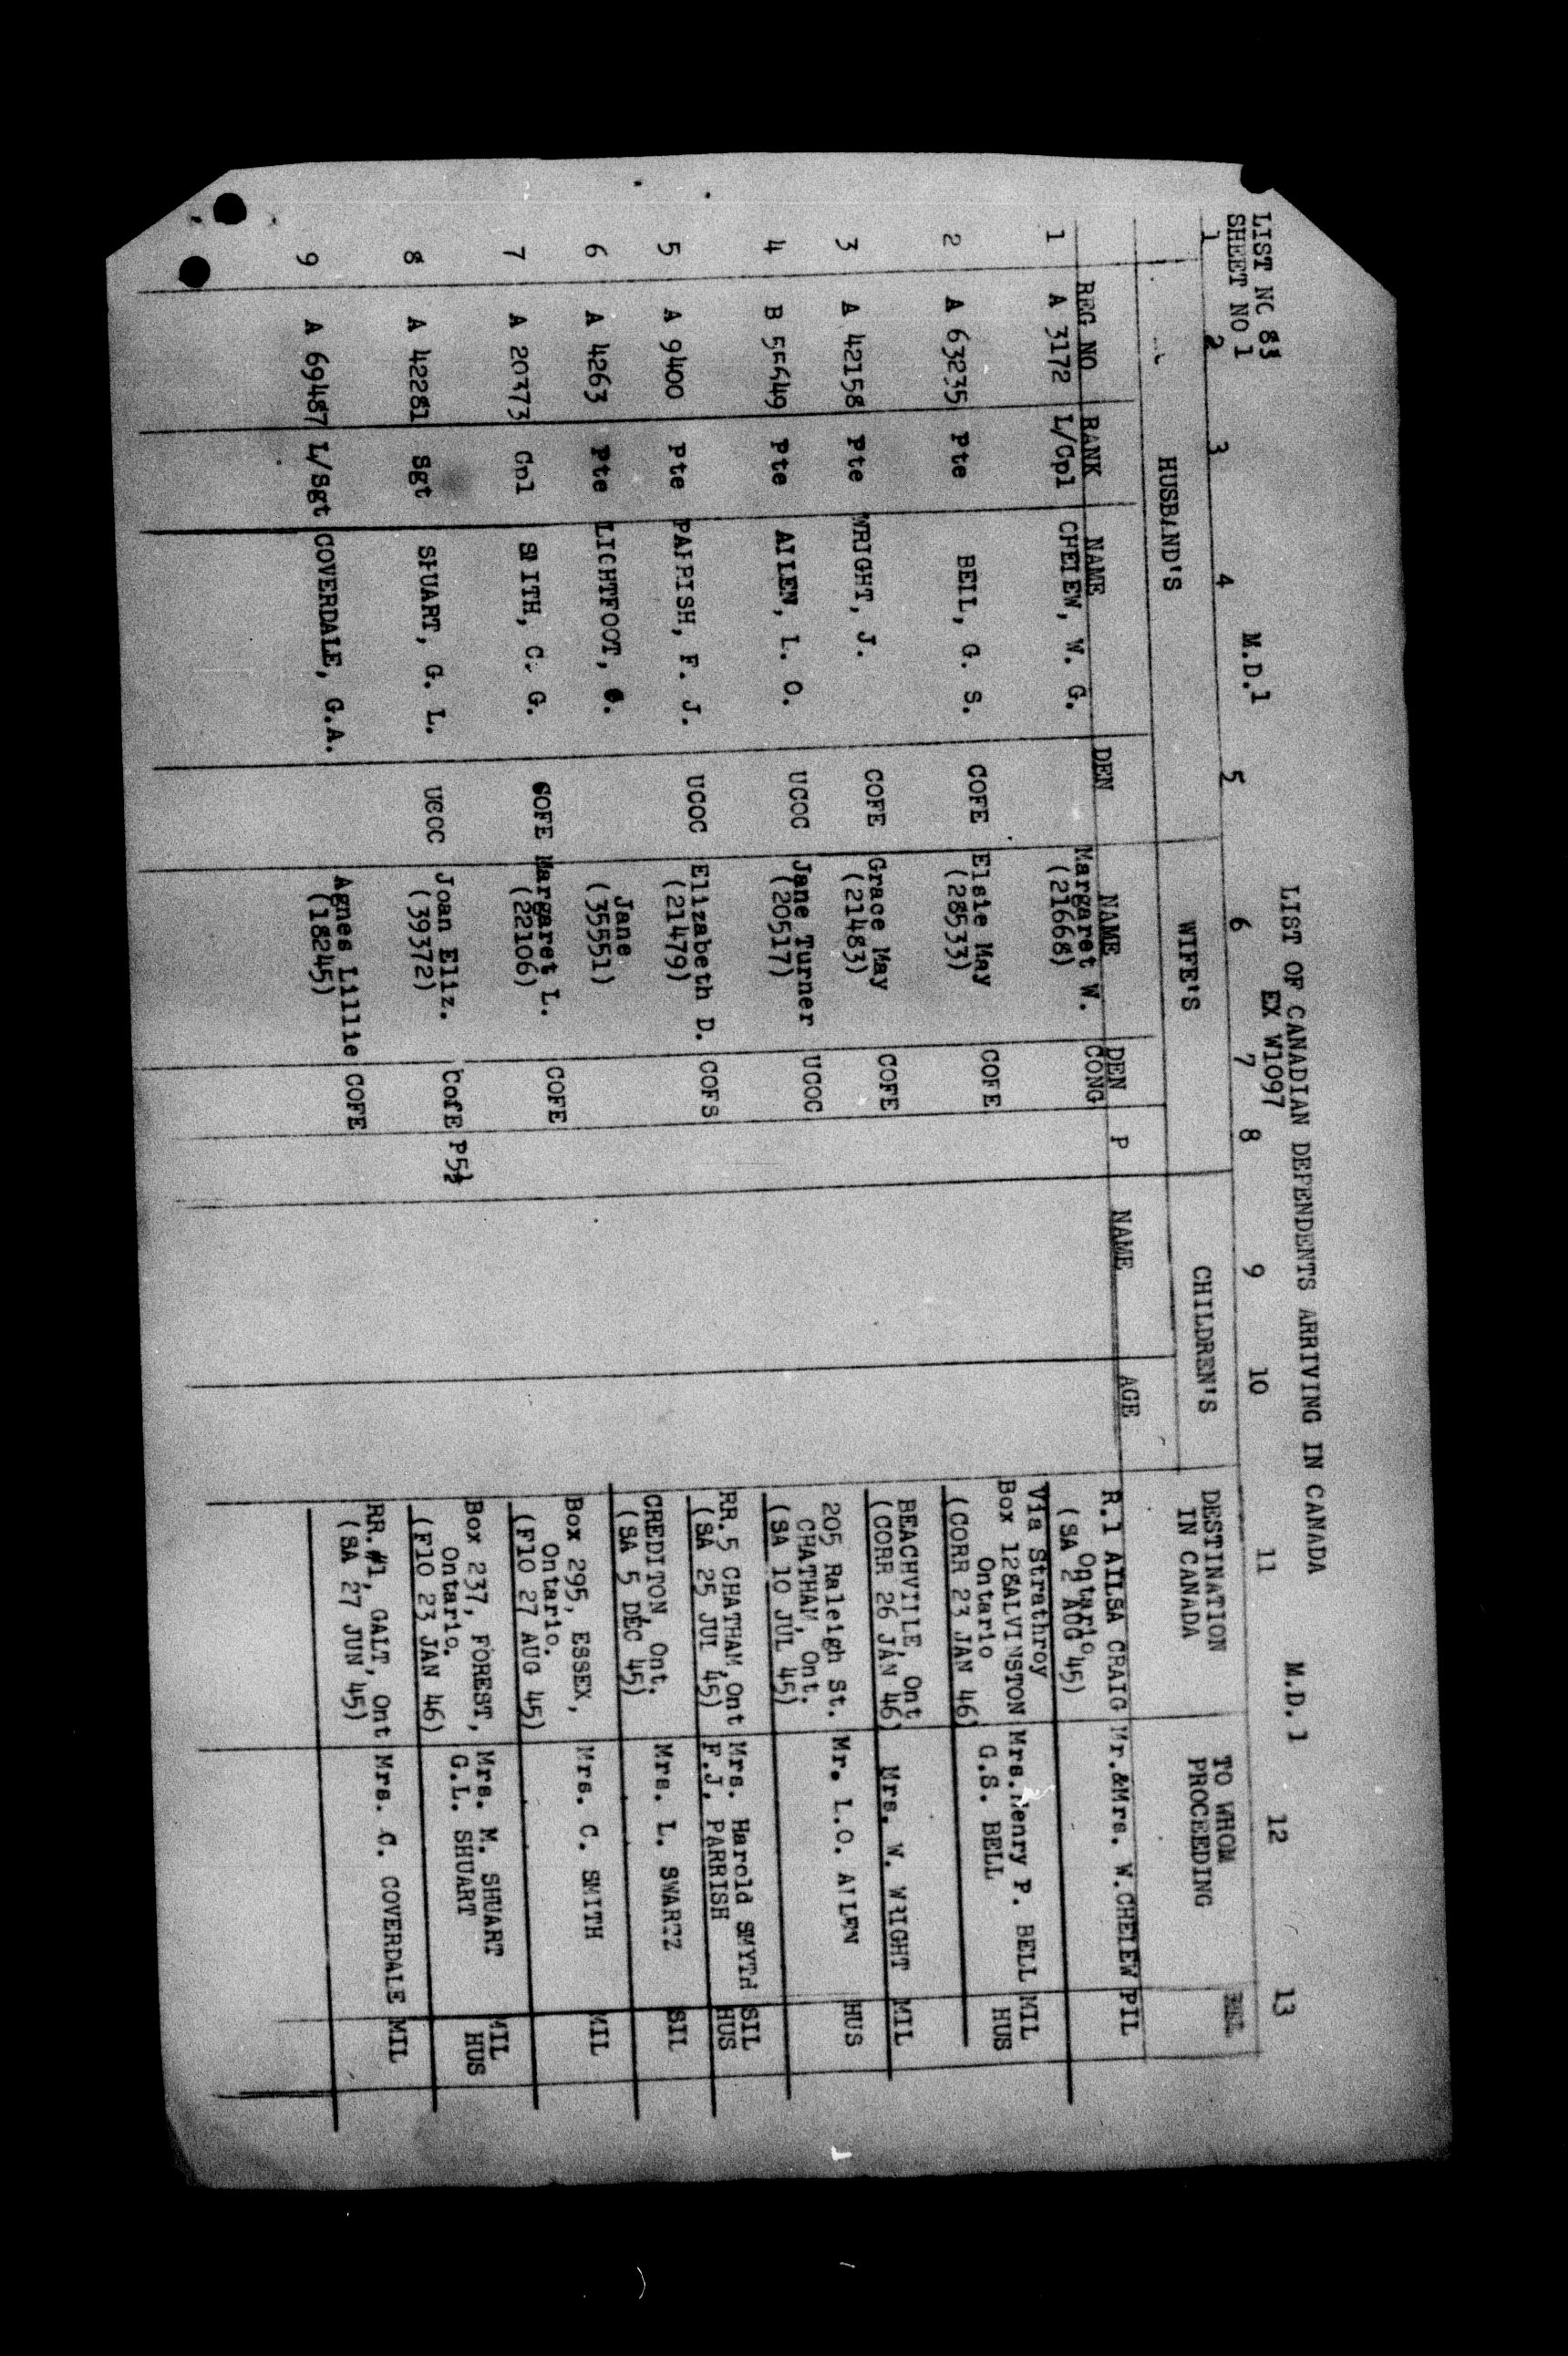 LIST NO 83
SHEET NO 1
M.D.1
LIST OF CANADIAN DEPENDENTS ARRIVING IN CANADA
EX W1097
M.D.1
1 2 3 4 5 6 7 8 9 10 11 12 13
HUSBAND'S WIFE'S CHILDREN'S DESTINATION IN CANADA TO WHOM PROCEEDING
REG NO RANK NAME DEN NAME DEN P NAME AGE
1 A 3172 L/Cpl CHELEW, W. G. Margaret W. CONG R.1 AILSA CRAIG Mr.&Mrs. W.CHELEW PIL
(21668) Ontario
(SA 2 AUG 45)
Via Strathroy
2 A 63235 Pte BELL, G. S. COFE Elsie May COFE Box 128ALVINSTON Mrs.Henry P. BELL MIL
(28533) Ontario G.S. BELL HUS
(CORR 23 JAN 46)
3 A 42158 Pte WRIGHT, J. COFE Grace May COFE BEACHVILLE, Ont Mrs. W. WRIGHT MIL
(21483) (CORR 26 JAN 46)
4 B 55649 Pte ALLEN, L. O. UCOC Jane Turner UCOC 205 Raleigh St. Mr. L.O. ALLEN HUS
(20517) CHATHAM, Ont.
(SA 10 JUL 45)
5 A 9400 Pte PARRISH, F. J. UCOC Elizabeth D. COFS RR.5 CHATHAM,Ont Mrs. Harold SMYTH SIL
(21479) (SA 25 JUL 45) F.J. PARRISH HUS
6 A 4263 Pte LIGHTFOOT, Jane CREDITON, Ont. Mrs. L. SWARTZ SIL
(35551) (SA 5 DEC 45)
7 A 20373 Cpl SMITH, C. G. COFE Margaret L. COFE Box 295, ESSEX, Mrs. C. SMITH MIL
(22106) Ontario.
(F10 27 AUG 45)
8 A 42281 Sgt SHUART, G. L. UCOC Joan Eliz. CofE P5½ Box 237, FOREST, Mrs. M. SHUART MIL
(39372) Ontario. G.L. SHUART HUS
(F10 23 JAN 46)
9 A 69487 L/Sgt COVERDALE, G.A. Agnes Lillie COFE RR.#1, GALT, Ont Mrs. C. COVERDALE MIL
(18245) (SA 27 JUN 45)